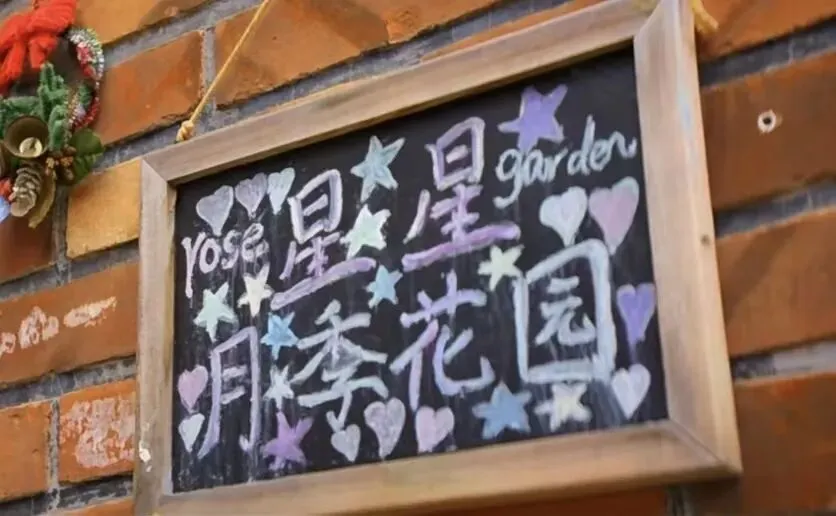 rose 星星 garden
月季花园